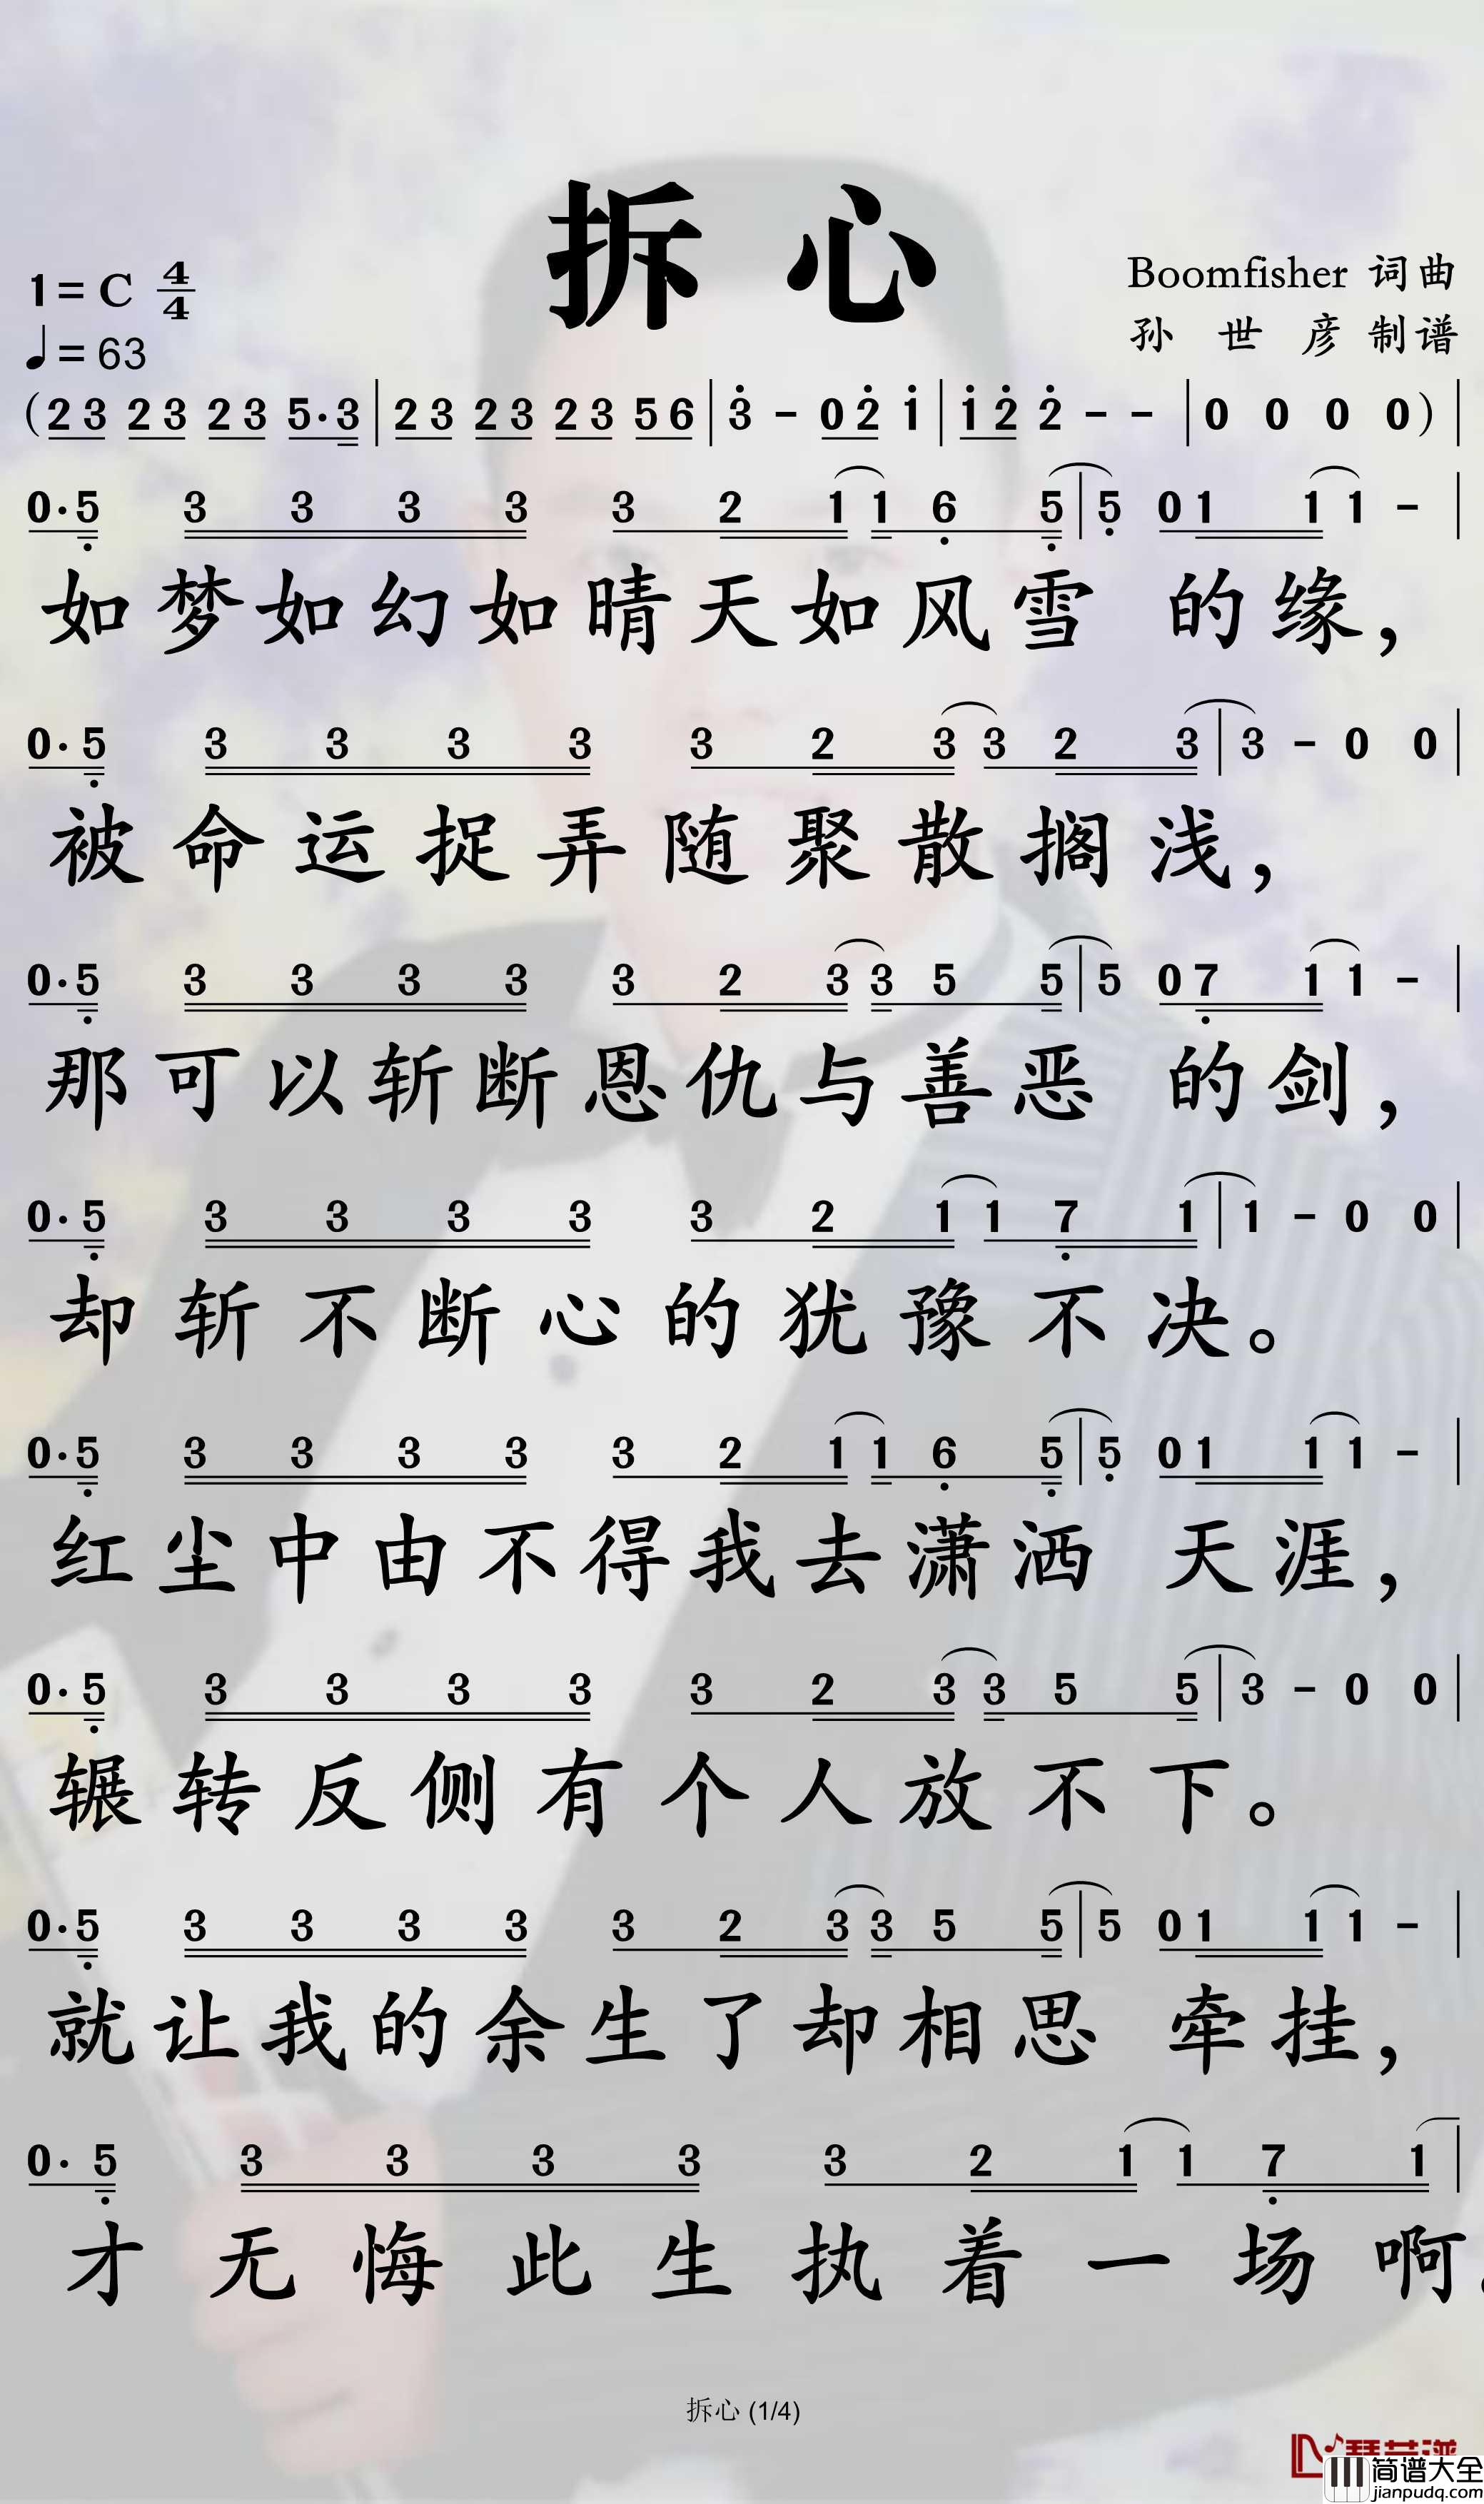 拆心
1=C 4/4
Boomfisher 词曲
♩=63
孙世彦 制谱
(23 23 23 5·3|23 23 23 56|3 - 02 1|12 2 - -|0 0 0 0)|
0·5 3 3 3 3 3 2 1 1 6 5|5 0 1 1 1 -|
如梦如幻如晴天如风雪 的缘，
0·5 3 3 3 3 3 2 3 3 2 3|3 - 0 0|
被命运捉弄随聚散搁浅，
0·5 3 3 3 3 3 2 3 3 5 5|5 0 7 1 1 -|
那可以斩断恩仇与善恶 的剑，
0·5 3 3 3 3 3 2 1 1 7 1|1 - 0 0|
却斩不断心的犹豫不决。
0·5 3 3 3 3 3 2 1 1 6 5|5 0 1 1 1 -|
红尘中由不得我去潇洒 天涯，
0·5 3 3 3 3 3 2 3 3 5 5|3 - 0 0|
辗转反侧有个人放不下。
0·5 3 3 3 3 3 2 3 3 5 5|5 0 1 1 1 -|
就让我的余生了却相思 牵挂，
0·5 3 3 3 3 3 2 1 1 7 1|
才无悔此生执着一场啊
拆心 (1/4)
简谱大全
jianpudq.com